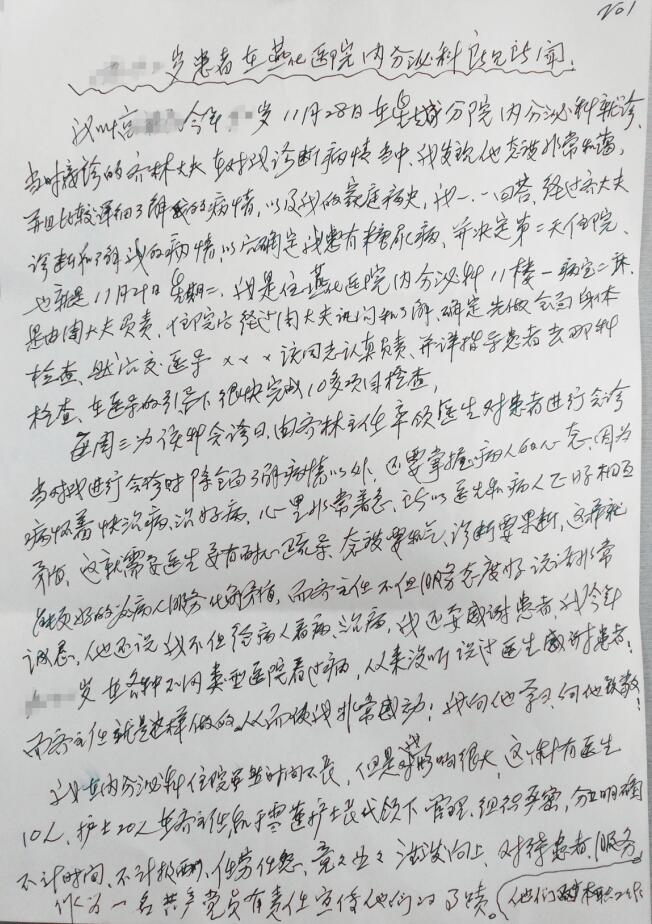 201
岁患者在燕化医院内分泌科所见所闻.
我叫 今年 岁11月28日在星城分院内分泌科就诊.
当时接诊的齐林大夫在对我诊断病情当中,我发现他态度非常和蔼,
并且比较详细了解我的病情,以及我的家庭病史,我一.一回答,经过齐大夫
诊断和了解我的病情以后确定我患有糖尿病,并决定第二天住院、
也就是11月29日星期二,我是住燕化医院内分泌科11楼一病室二床.
是由周大夫负责、住院后经过周大夫询问和了解、确定先做全面身体
检查、然后交医导×××该同志认真负责、并详指导患者去那种
检查、在医导的引导下很快完成10多项目检查,
每周三为该科会诊日,由齐林主任率领医生对患者进行会诊
当对我进行会诊时除全面了解病情以外,还要掌握病人的心态,因为
病怀着快治病、治好病,心里非常着急,所以医生和病人正好相互
矛盾,这就需要医生要有耐心疏导、态度要和气、诊断要果断,这样就
能很好的为病人服务化解矛盾,而齐主任不但服务态度好说话非常
诚恳,他还说我不但给病人看病、治病,我还要感谢患者,我今年
岁在各种不同类型医院看过病,从来没听说过医生感谢患者,
而齐主任就是这样做的从而使我非常感动!我向他学习,向他致敬!
我在内分泌科住院虽然时间不长,但是对我影响很大,这个科有医生
10人,护士20人在齐主任和 护士长代领下管理、组织严密,分工明确
不计时间、不计报酬、任劳任怨、兢兢业业 向上,对待患者、服务
作为一名共产党员有责任宣传他们的事迹。 他们